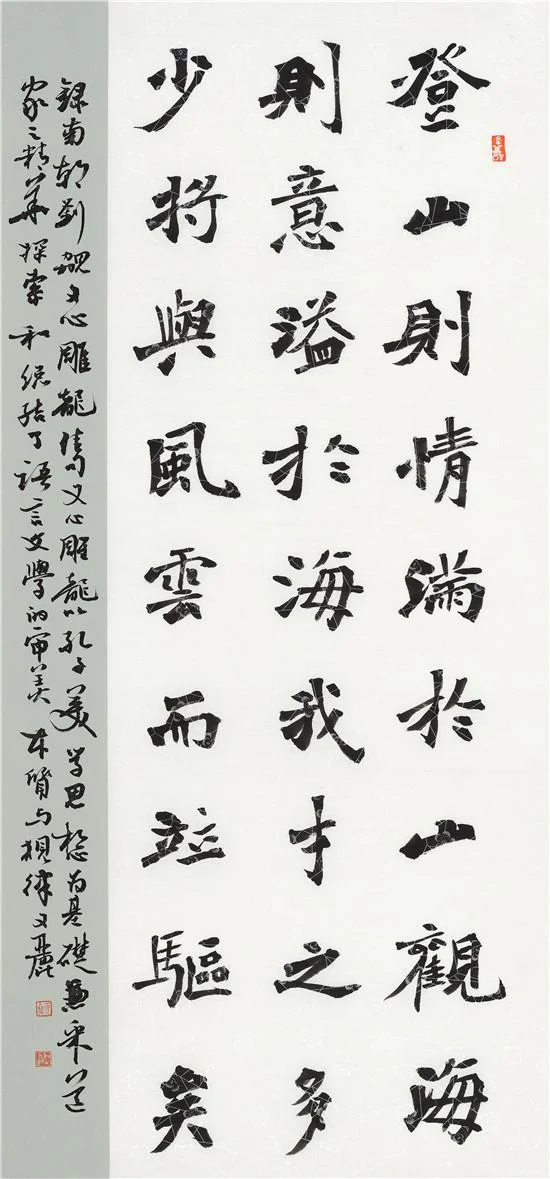 登山則情滿於山觀海
則意溢於海我才之多
少將與風雲而竝驅矣
錄南朝劉勰文心雕龍句文心雕龍以孔子美學思想為基礎兼采道
家之精華探索和總結了語言文學的審美本質与規律文麗